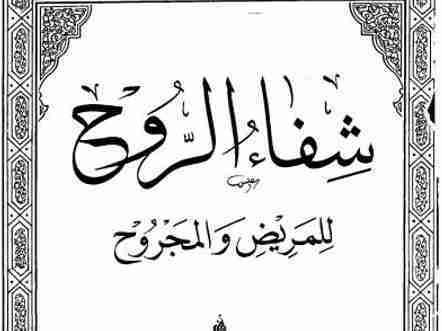 شِفَاءُ الرُّوح
لِلمَرِيْضِ وَالمَجْرُوْح